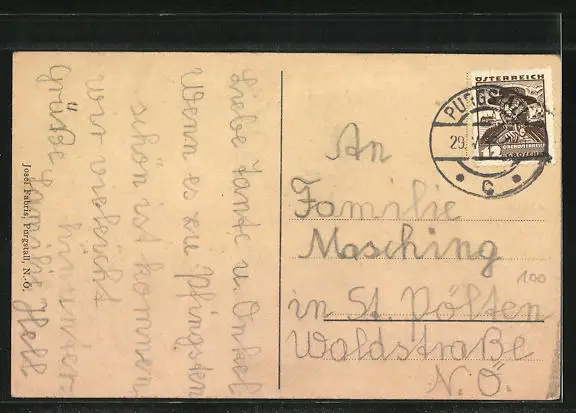 Liebe Tante u. Onkel
Wenn es zu Pfingsten
schön ist kommen
wir vielleicht
hinunter.
Grüße Familie Hell
Josef Fabris, Purgstall, N.-Ö.
An
Familie
Masching
in St. Pölten
Waldstraße
N.Ö.
100
ÖSTERREICH
OBERÖSTERREICH
12 GROSCHEN
PURGSTALL
29. V.
C